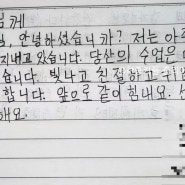 님께
안녕하셨습니까? 저는 아
지내고 있습니다. 당산의 수업은
습니다. 빛나고 친절하고
합니다. 앞으로 같이 힘내요.
해요.